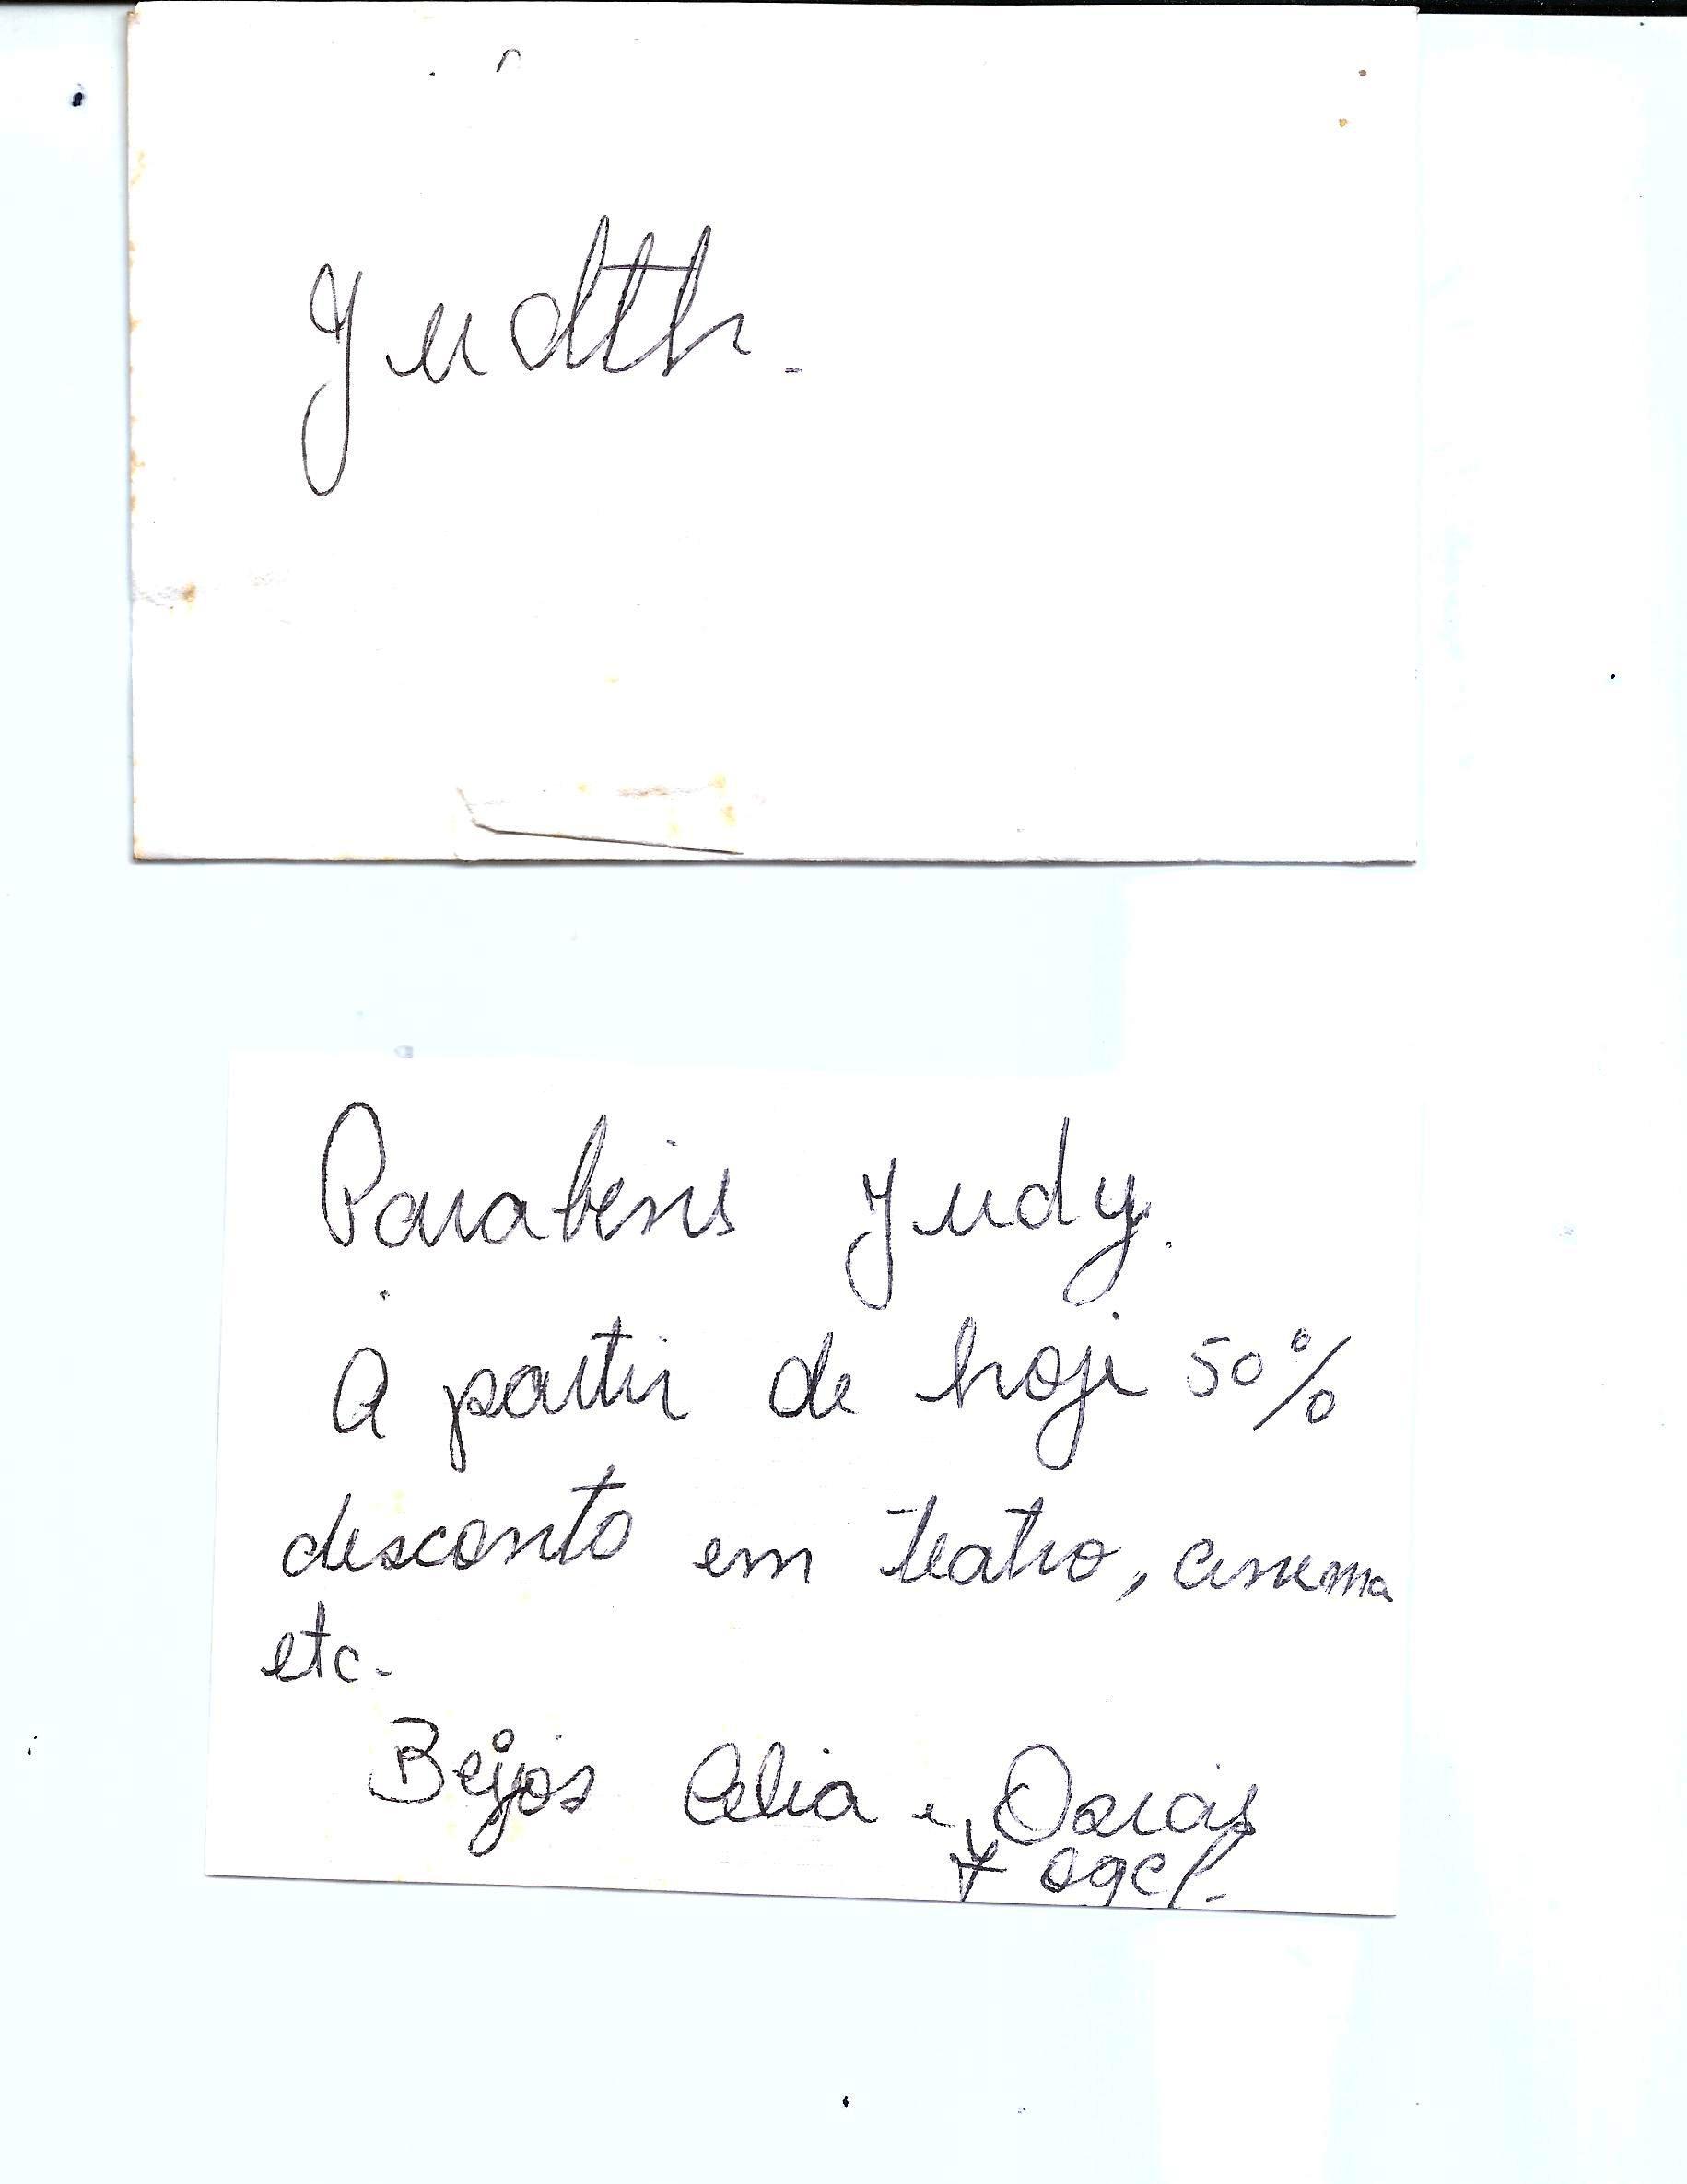 Judith.
Parabens Judy.
A partir de hoje 50%
desconto em teatro, cinema
etc.
Beijos Celia e